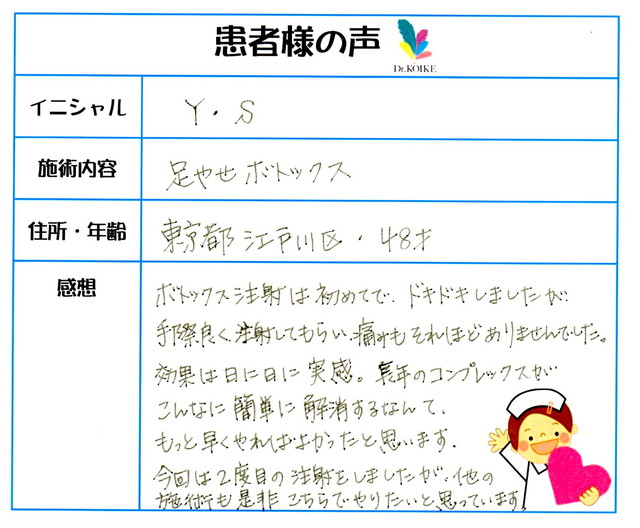 患者様の声
Dr.KOIKE
イニシャル Y・S
施術内容 足やせボトックス
住所・年齢 東京都江戸川区・48才
感想
ボトックス注射は初めてで、ドキドキしましたが
手際良く注射してもらい、痛みもそれほどありませんでした。
効果は日に日に実感。長年のコンプレックスが
こんなに簡単に解消するなんて、
もっと早くやればよかったと思います。
今回は2度目の注射をしましたが、他の
施術も是非こちらでやりたいと思っています。